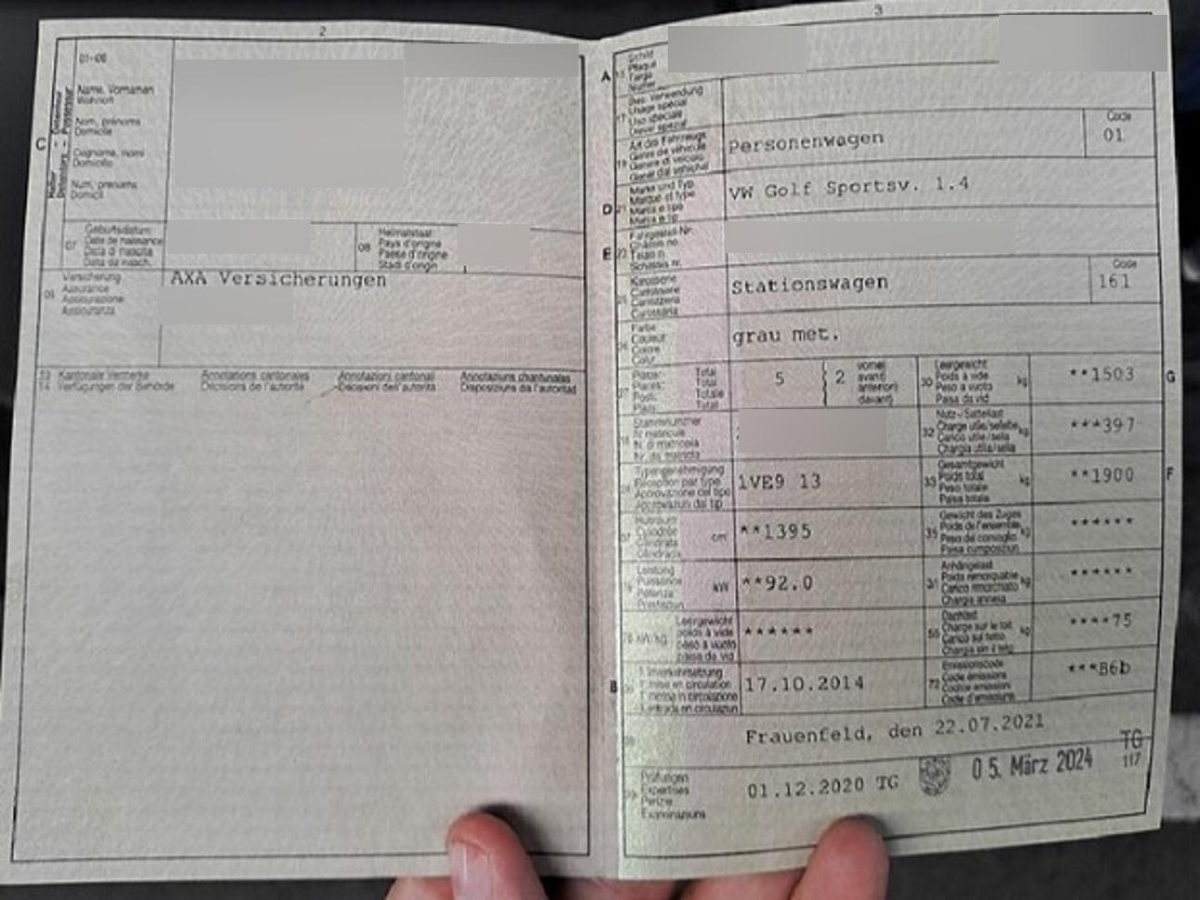 2
01-06
C
Name, Vornamen
Wohnort
Nom, prénoms
Domicile
Cognome, nomi
Domicilio
Num, prenoms
Domicil
07
Geburtsdatum
Date de naissance
Data di nascita
Data da nasch.
08
Heimatstaat
Pays d'origine
Paese d'origine
Stadi d'origin
09
Versicherung
Assurance
Assicurazione
Assicuranza
AXA Versicherungen
13 Kantonale Vermerke
14 Verfügungen der Behörde
Annotations cantonales
Décisions de l'autorité
Annotazioni cantonali
Decisioni dell'autorità
Annotaziuns chantunalas
Disposiziuns da l'autoritad
3
A
Schild
Plaque
Targa
Numer
Bes. Verwendung
Usage spécial
Uso speciale
Diever spezial
Art des Fahrzeugs
Genre de véhicule
Genere di veicolo
Gener dal vehichel
Personenwagen
Code
01
D
Marke und Typ
Marque et type
Marca e tipo
Marca e tip
VW Golf Sportsv. 1.4
E
Fahrgestell-Nr.
Châssis no.
Telaio n.
Schassis nr.
Karosserie
Carrosserie
Carrozzeria
Carossaria
Stationswagen
Code
161
Farbe
Couleur
Colore
Colur
grau met.
Total
Total
Totale
Total
5
2
vorne)
avant)
anteriori)
davant)
30
Leergewicht
Poids à vide
Peso a vuoto
Paisa da vid
kg
**1503
G
Stammnummer
Nr matricule
N. di matricola
Nr. da matricla
32
Nutz-/Sattellast
Charge utile/sellette
Carico utile/sella
Chargia utila/sella
kg
***397
Typengenehmigung
Réception par type
Approvazione del tipo
Approvaziun dal tip
1VE9 13
33
Gesamtgewicht
Poids total
Peso totale
Paisa totala
kg
**1900
F
37
Hubraum
Cylindrée
Cilindrata
Cilindrada
cm³
**1395
35
Gewicht des Zuges
Poids de l'ensemble
Peso del convoglio
Paisa cumposiziun
kg
******
Leistung
Puissance
Potenza
Prestaziun
kW
**92.0
31
Anhängelast
Poids remorquable
Carico rimorchiato
Chargia annexa
kg
******
Leergewicht
poids à vide
peso a vuoto
paisa da vid
******
55
Dachlast
Charge sur le toit
Carico sul tetto
Chargia sin il tetg
kg
****75
B
1. Inverkehrsetzung
1. mise en circulation
1. messa in circolazione
1. entrada en circulaziun
17.10.2014
72
Emissionscode
Code émissions
Codice emissioni
Code d'emissiuns
***B6b
Frauenfeld, den 22.07.2021
Prüfungen
Expertises
Perizie
Examinaziuns
01.12.2020 TG
05. März 2024
TG
117